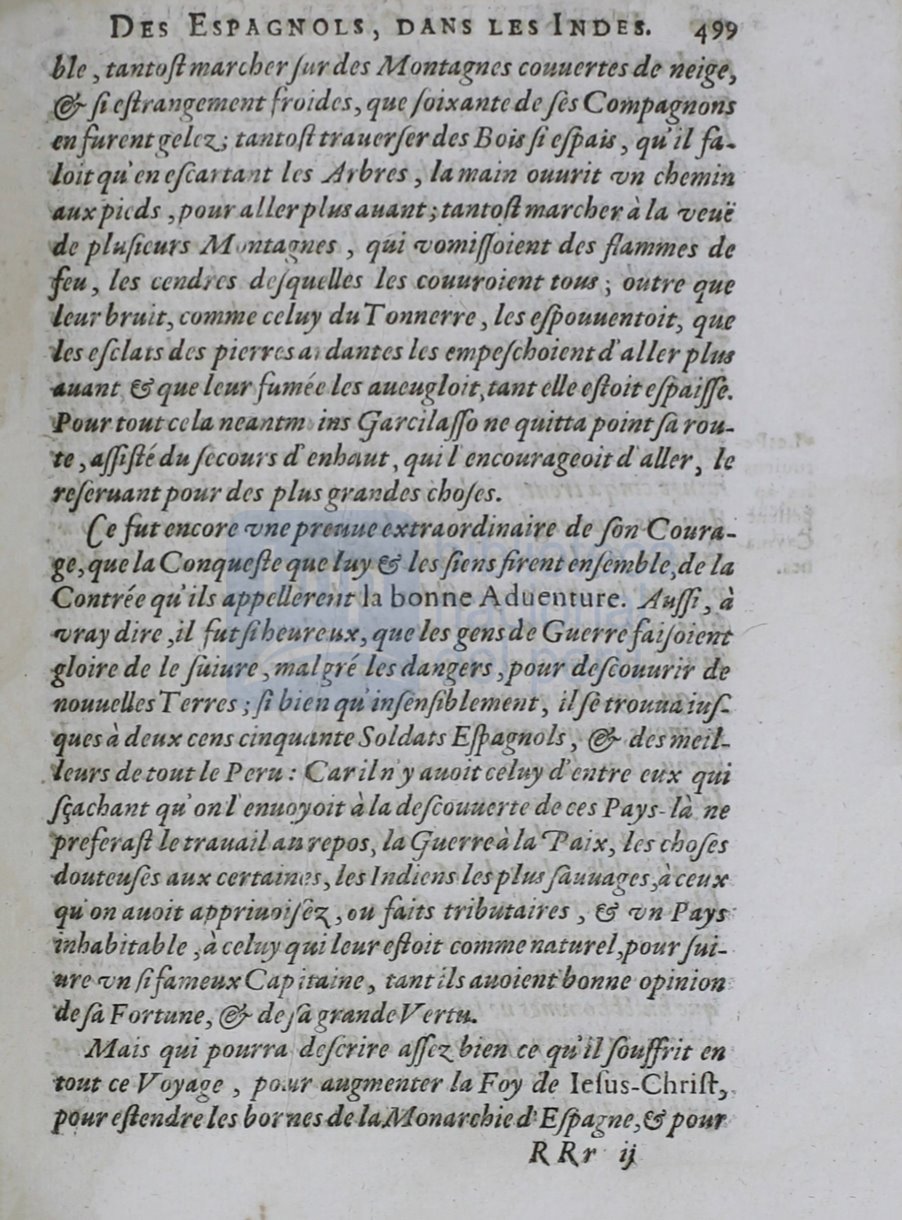 DES ESPAGNOLS, DANS LES INDES. 499
ble, tantoſt marcher ſur des Montagnes couuertes de neige,
& ſi eſtrangement froides, que ſoixante de ſes Compagnons
en furent gelez; tantoſt trauerſer des Bois ſi eſpais, qu'il fa-
loit qu'en eſcartant les Arbres, la main ouurit vn chemin
aux pieds, pour aller plus auant; tantoſt marcher à la veuë
de pluſieurs Montagnes, qui vomiſſoient des flammes de
feu, les cendres deſquelles les couuroient tous; outre que
leur bruit, comme celuy du Tonnerre, les eſpouuentoit, que
les eſclats des pierres ardantes les empeſchoient d'aller plus
auant & que leur fumée les aueugloit, tant elle eſtoit eſpaiſſe.
Pour tout cela neantmoins Garcilaſſo ne quitta point ſa rou-
te, aſſiſté du ſecours d'enhaut, qui l'encourageoit d'aller, le
reſeruant pour des plus grandes choſes.
Ce fut encore vne preuue extraordinaire de ſon Coura-
ge, que la Conqueſte que luy & les ſiens firent enſemble, de la
Contrée qu'ils appellerent la bonne Aduenture. Auſſi, à
vray dire, il fut ſi heureux, que les gens de Guerre faiſoient
gloire de le ſuiure, malgré les dangers, pour deſcouurir de
nouuelles Terres; ſi bien qu'inſenſiblement, il ſe trouua iuſ-
ques à deux cens cinquante Soldats Eſpagnols, & des meil-
leurs de tout le Peru: Car il n'y auoit celuy d'entre eux qui
ſçachant qu'on l'enuoyoit à la deſcouuerte de ces Pays-là ne
preferaſt le trauail au repos, la Guerre à la Paix, les choſes
douteuſes aux certaines, les Indiens les plus ſauuages, à ceux
qu'on auoit appriuoiſez, ou faits tributaires, & vn Pays
inhabitable, à celuy qui leur eſtoit comme naturel, pour ſui-
ure vn ſi fameux Capitaine, tant ils auoient bonne opinion
de ſa Fortune, & de ſa grande Vertu.
Mais qui pourra deſcrire aſſez bien ce qu'il ſouffrit en
tout ce Voyage, pour augmenter la Foy de Ieſus-Chriſt,
pour eſtendre les bornes de la Monarchie d'Eſpagne, & pour
RRr ij